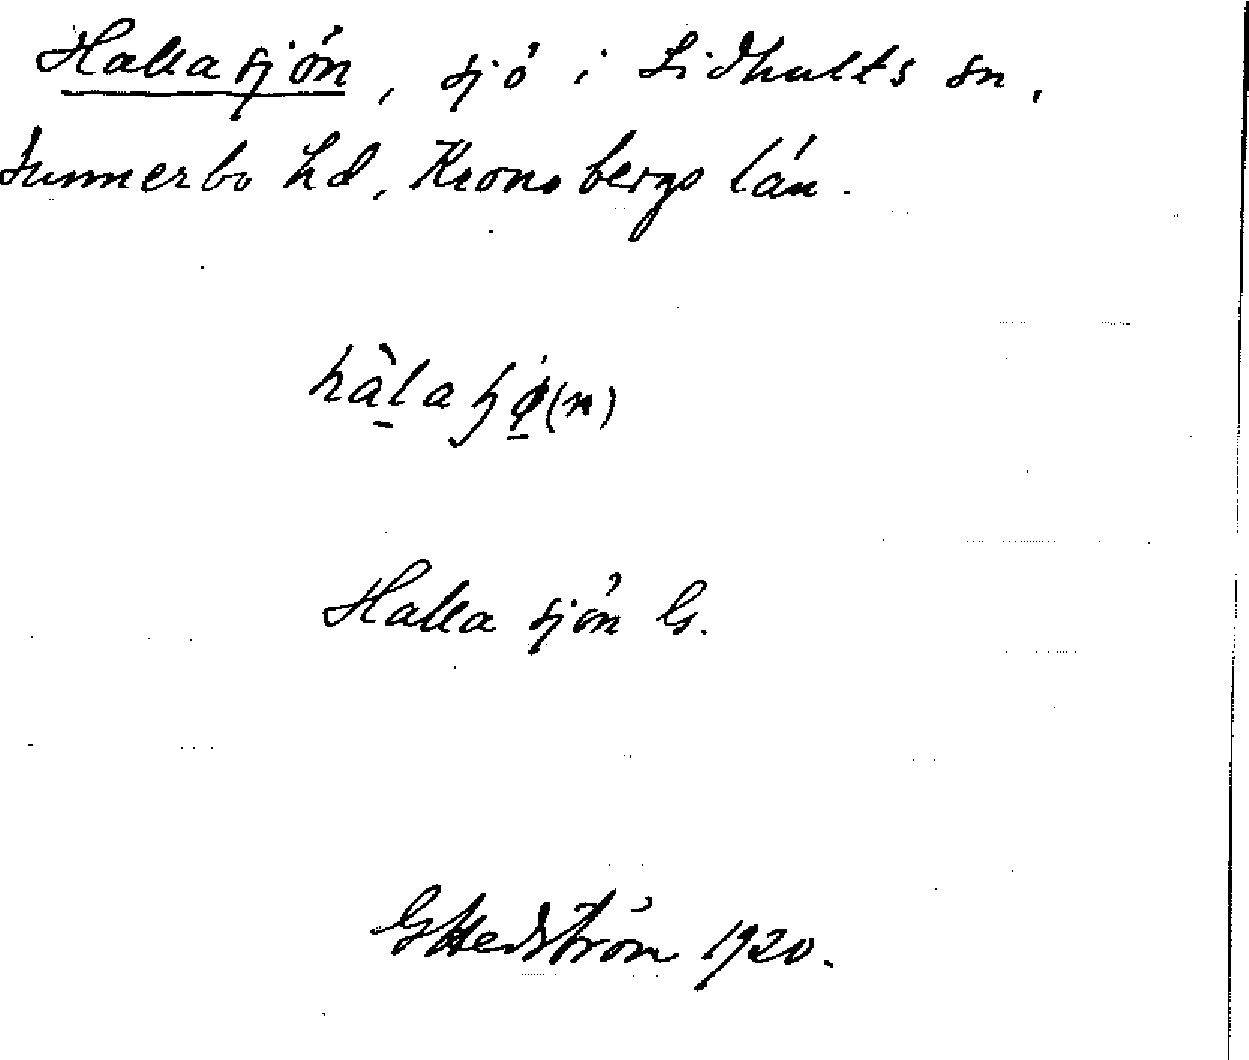 Hallasjön, sjö i Lidhults sn,
Sunnerbo hd, Kronobergs län.
Halla sjön G.
GHedström 1920.